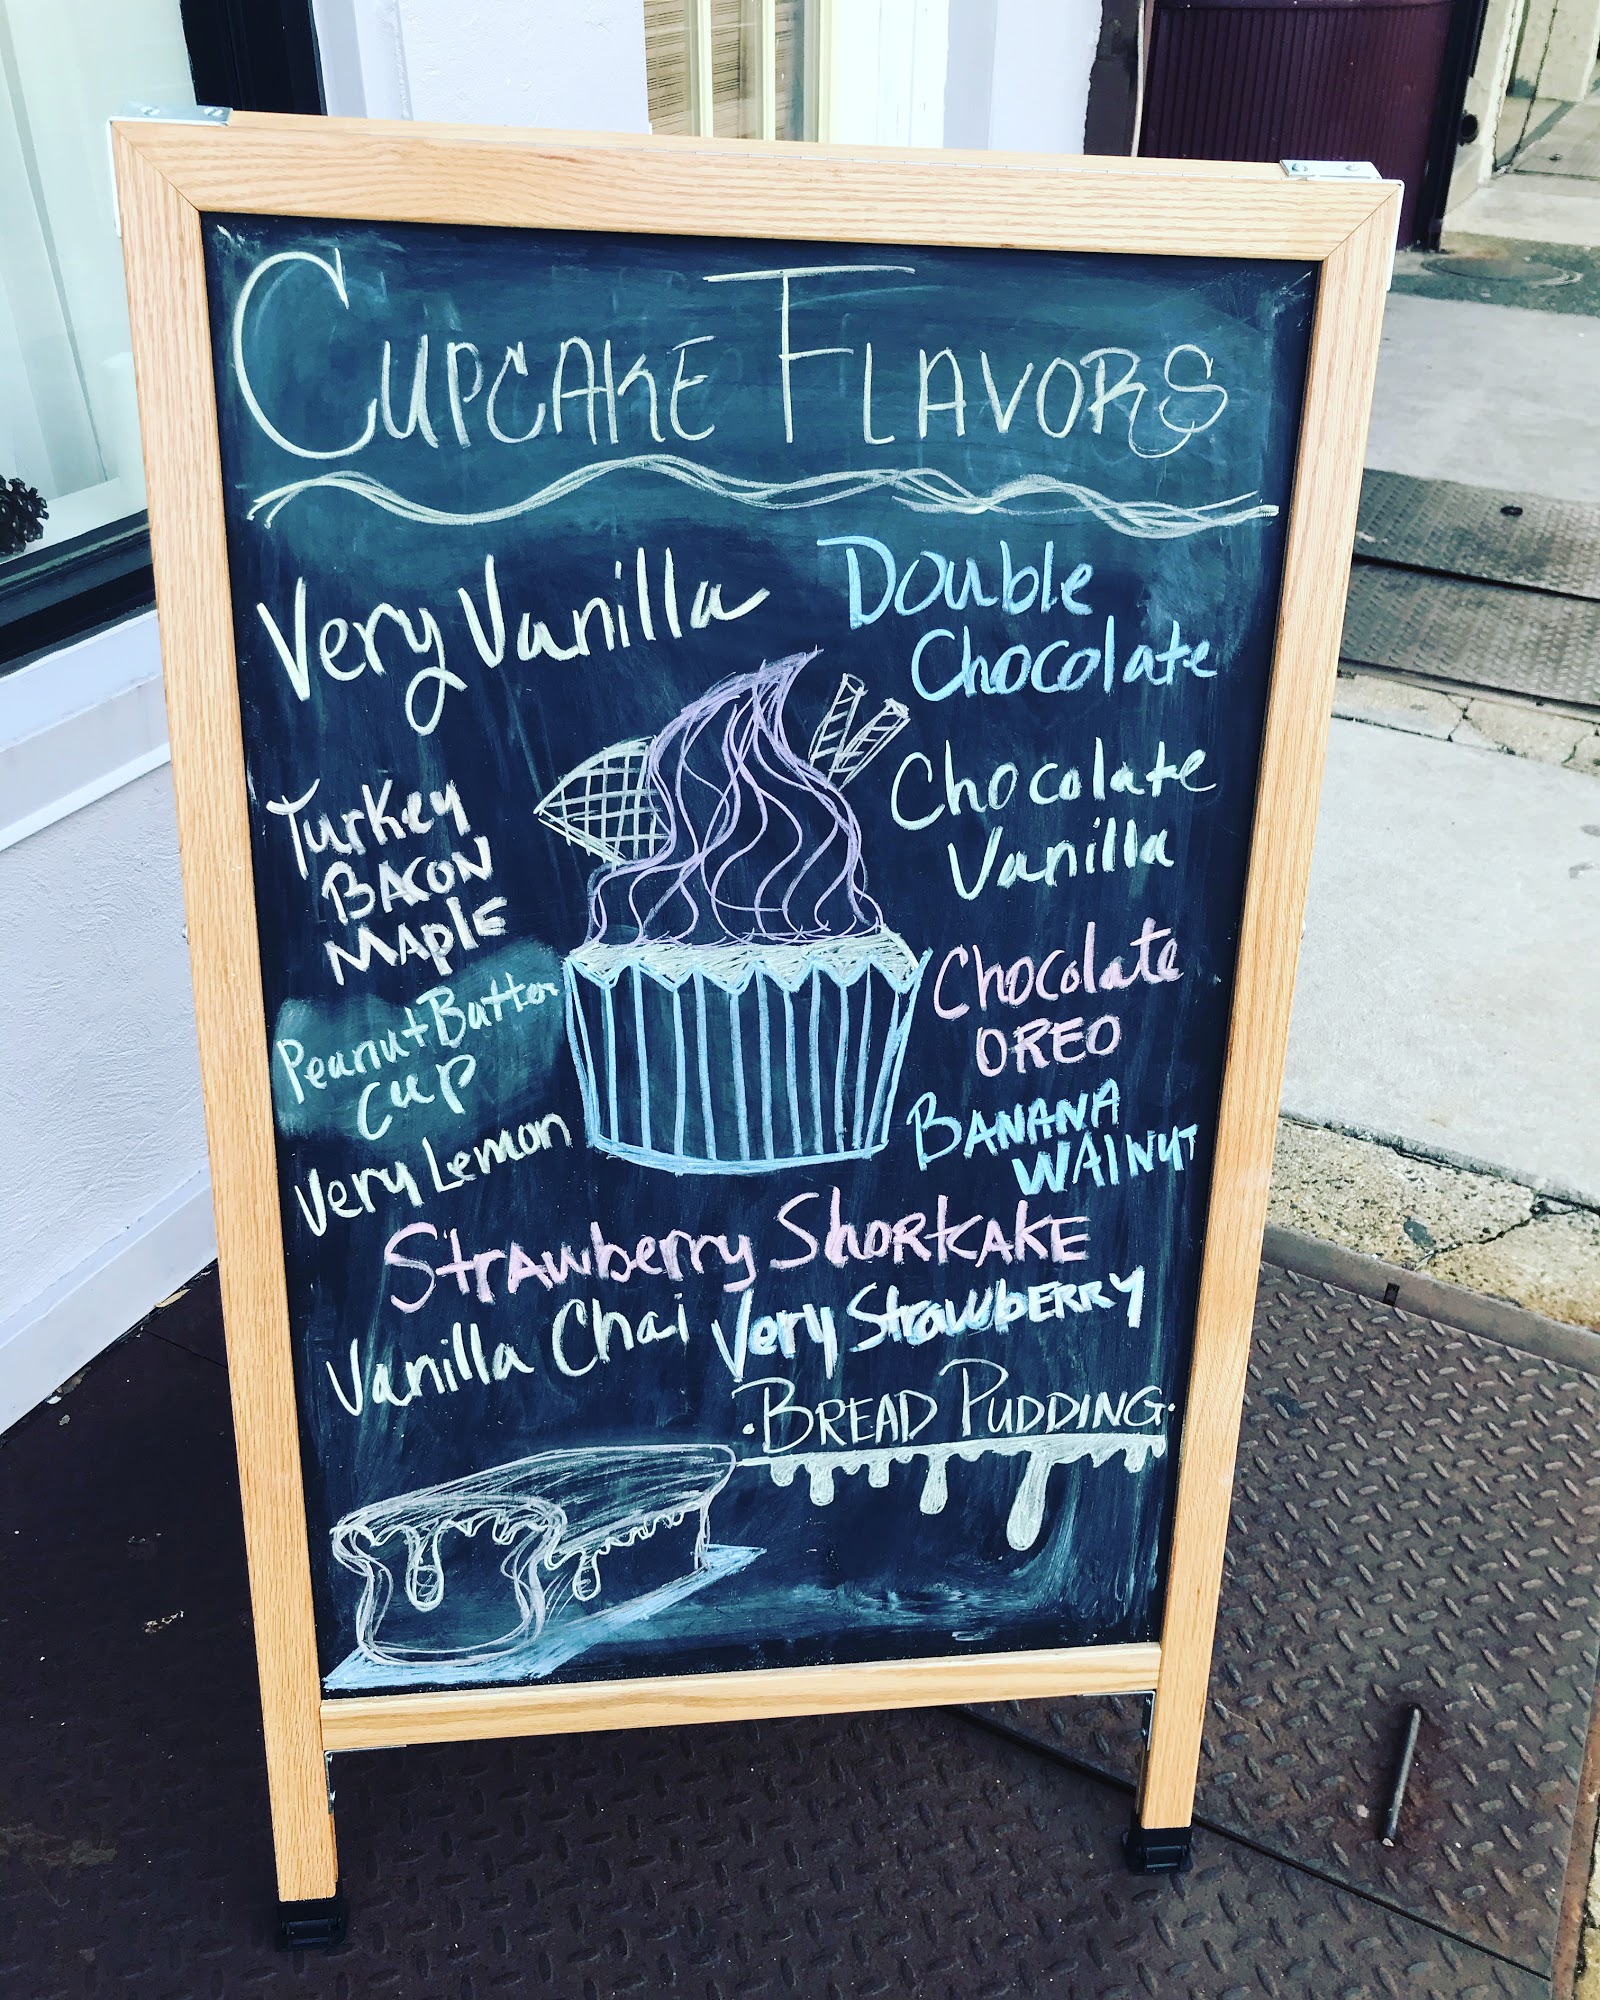 CUPCAKE FLAVORS
Very Vanilla
Double
Chocolate
Turkey
BACON
MAPLE
Chocolate
Vanilla
Peanut Butter
Cup
Chocolate
OREO
Very Lemon
BANANA
WALNUT
Strawberry ShortCAKE
Vanilla Chai
Very StrawbERRY
·BREAD PUDDING·